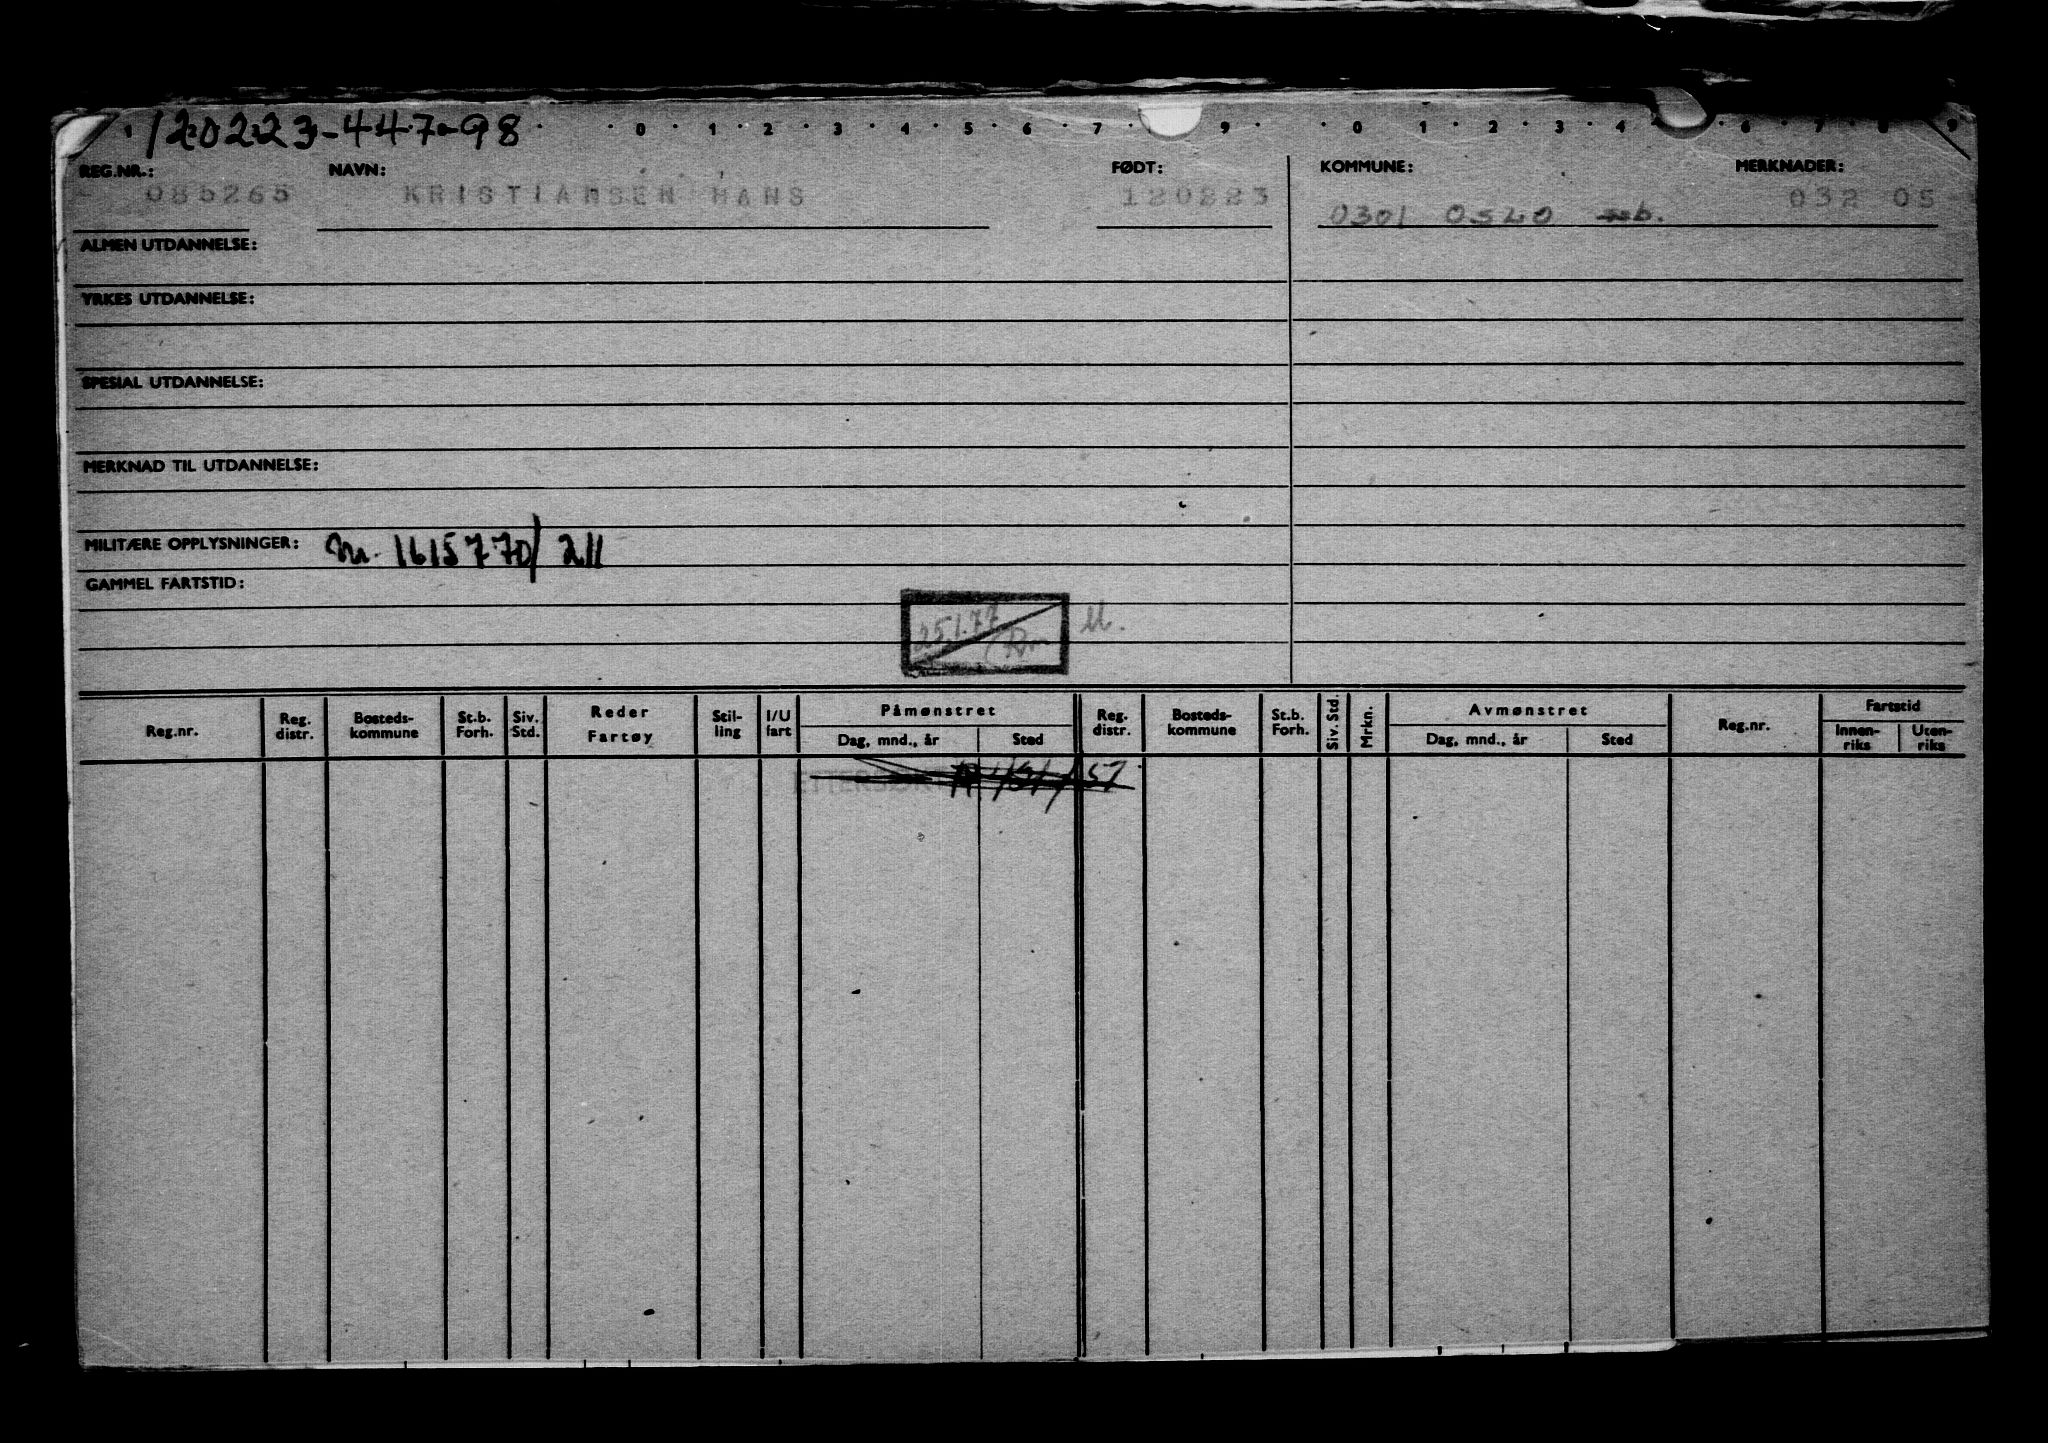 120223-447-98
0 1 2 3 4 5 6 7 9 0 1 2 3 4 6 7 8 9
REG.NR.: NAVN: FØDT: KOMMUNE: MERKNADER:
085265 KRISTIANSEN HANS 120223 0301 OSLO 032 05
ALMEN UTDANNELSE:
YRKES UTDANNELSE:
SPESIAL UTDANNELSE:
MERKNAD TIL UTDANNELSE:
MILITÆRE OPPLYSNINGER: Nr. 1615770/211
GAMMEL FARTSTID:
25.1.77 M.
Reg.nr. Reg. distr. Bosteds-kommune St.b. Forh. Siv. Std. Reder Fartøy Stil-ling I/U fart Påmønstret Dag, mnd., år Sted Reg. distr. Bosteds-kommune St.b. Forh. Siv. Std. Mrkn. Avmønstret Dag, mnd., år Sted Reg.nr. Fartstid Innen-riks Uten-riks